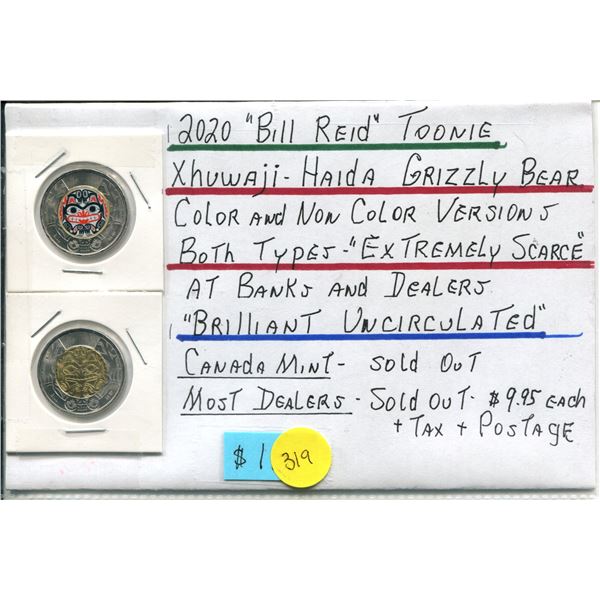 2020 "Bill Reid" Toonie
Xhuwaji - Haida Grizzly Bear
Color and Non Color Versions
Both Types - "Extremely Scarce"
At Banks and Dealers
"Brilliant Uncirculated"
Canada Mint - Sold Out
Most Dealers - Sold Out - $9.95 each
+ Tax + Postage
$ 1
319